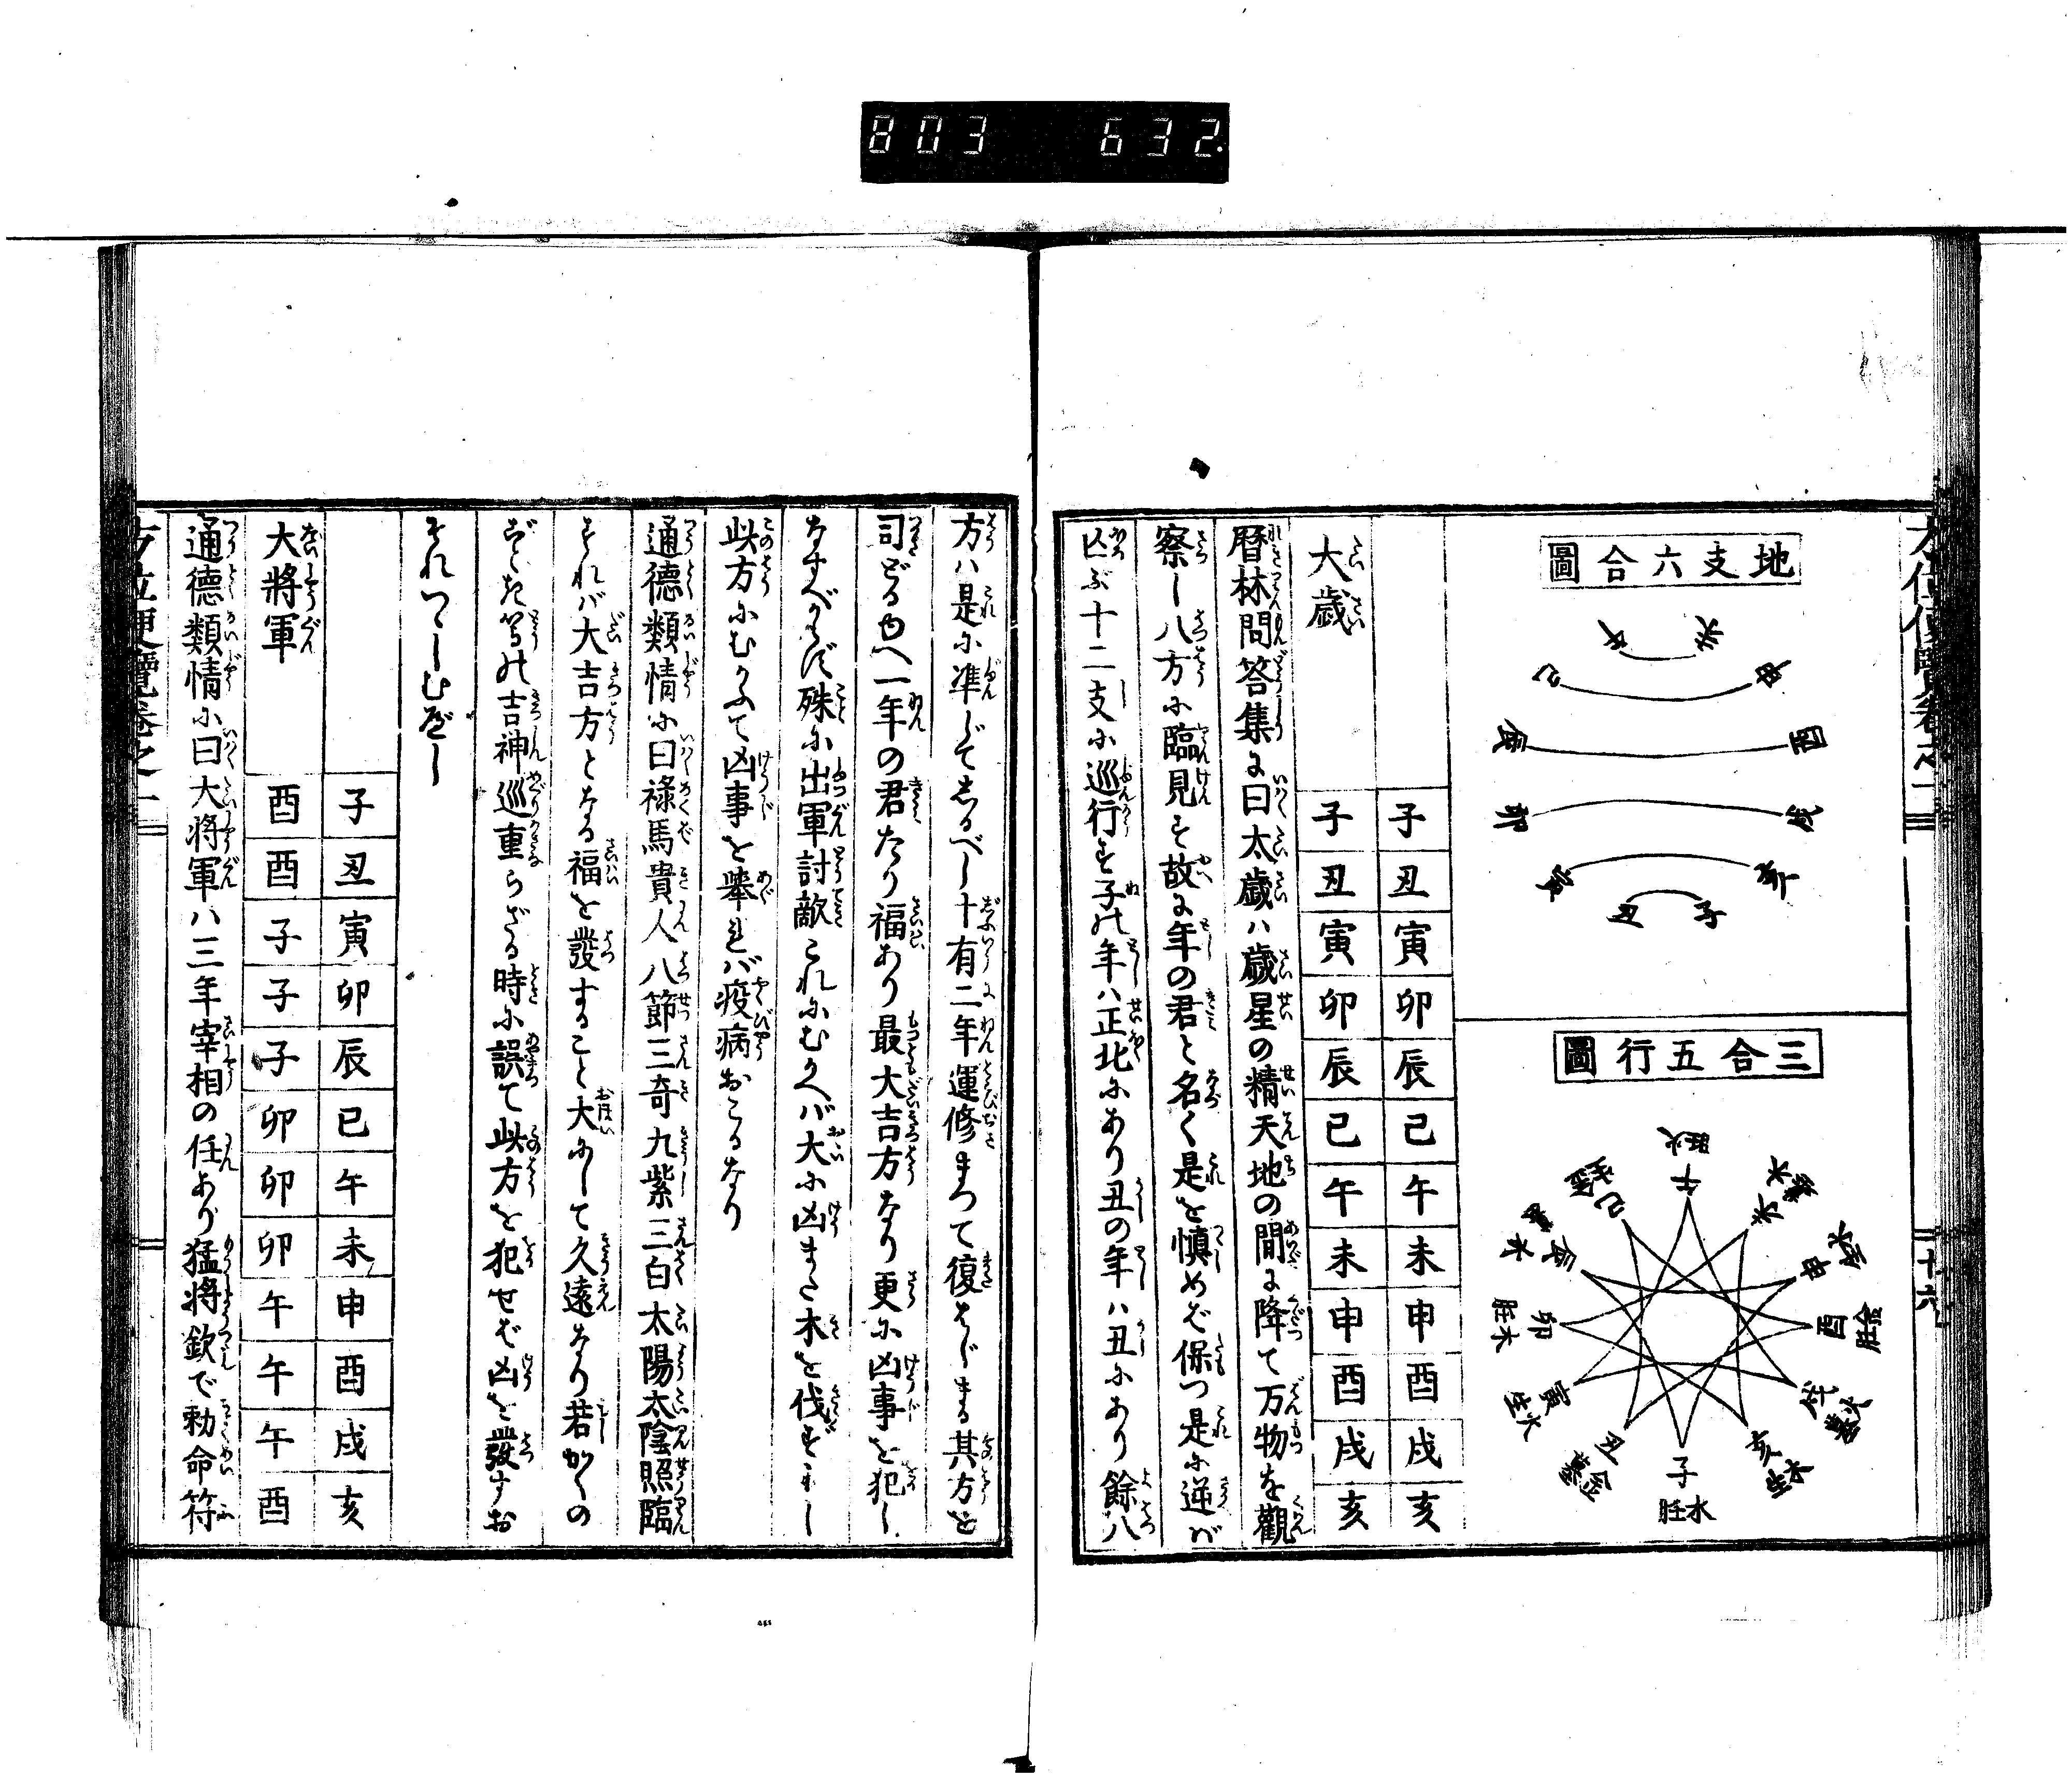 803 632.
地支六合圖
午 未
巳 申
辰 酉
卯 戌
寅 亥
丑 子
三合五行圖
午 旺火
未 墓木
申 生水
酉 旺金
戌 墓火
亥 生木
子 旺水
丑 墓金
寅 生火
卯 旺木
辰 墓水
巳 生金
十六
子丑寅卯辰巳午未申酉戌亥
大歳 子丑寅卯辰巳午未申酉戌亥
暦林問答集に曰太歳ハ歳星の精天地の間に降て万物を觀
察し八方に臨見す故に年の君と名く是を慎めば保つ是に逆が
凶ぶ十二支に巡行す子の年ハ正北にあり丑の年ハ丑にあり餘八
方ハ是に準じてしるべし十有二年運修まつて復はじまる其方を
司どるゆへ一年の君たり福あり最大吉方なり更に凶事を犯し
なすべからず殊に出軍討敵これにむかへバ大に凶また木を伐ず
此方にむかふて凶事を擧れバ疫病おこるなり
通德類情に曰禄馬貴人八節三奇九紫三白太陽太陰照臨
すれバ大吉方となる福を發すること大にして久遠なり若かくの
ごとき等の吉神巡重らざる時に誤て此方を犯せば凶を發すお
それつゝしむべし
子丑寅卯辰巳午未申酉戌亥
大將軍 酉酉子子子卯卯卯午午午酉
通德類情に曰大将軍ハ三年宰相の任あり猛将欽で勅命符
方位便覽巻之一